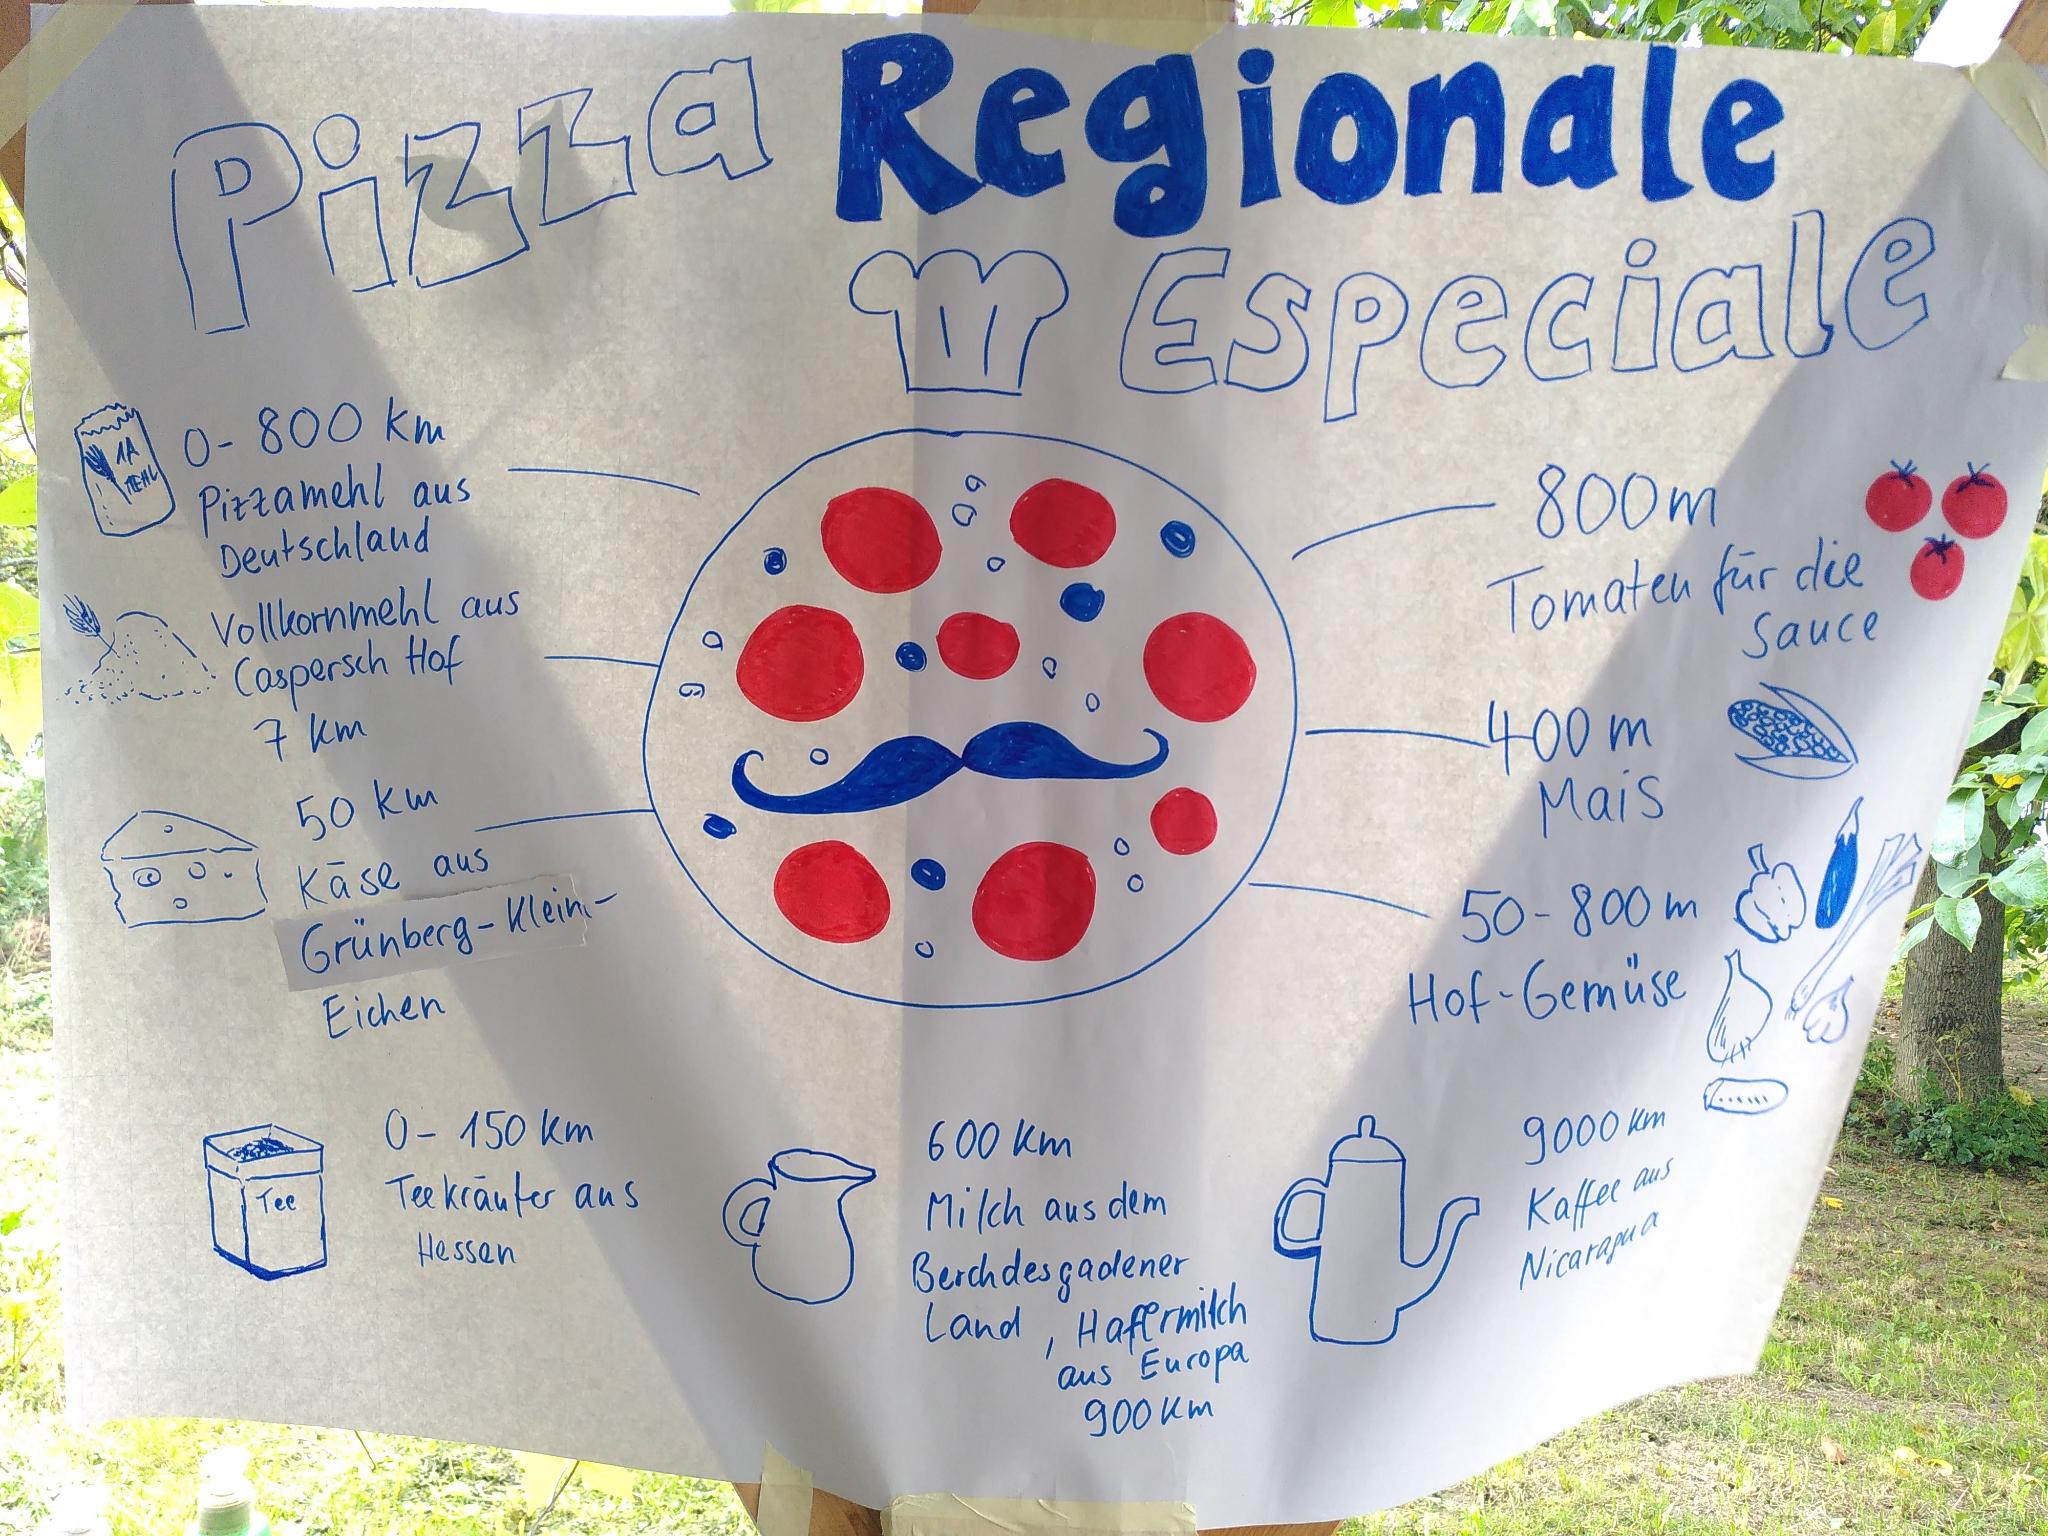 Pizza Regionale
Especiale
1A
MEHL
0-800 km
Pizzamehl aus
Deutschland
Vollkornmehl aus
Caspersch Hof
7 km
50 km
Käse aus
Grünberg-Klein-
Eichen
800m
Tomaten für die
Sauce
400m
Mais
50-800m
Hof-Gemüse
Tee
0-150 km
Teekräuter aus
Hessen
600 km
Milch aus dem
Berchdesgadener
Land, Haffermilch
aus Europa
900 km
9000 km
Kaffee aus
Nicaragua